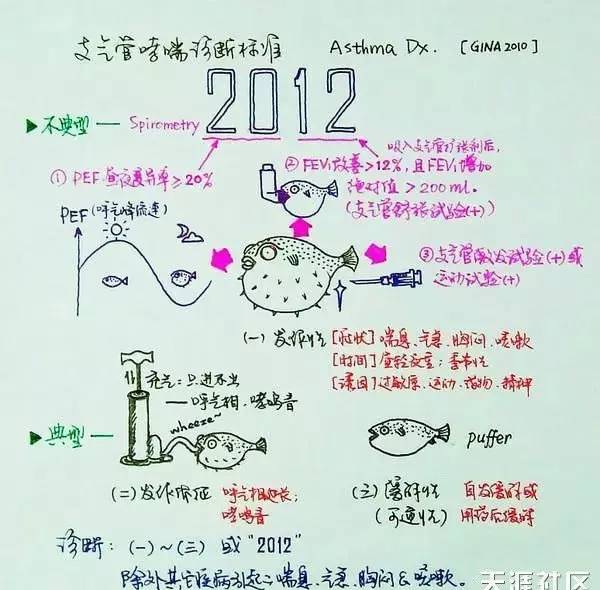 支气管哮喘诊断标准 Asthma Dx. [GINA 2010]
2012
不典型 — Spirometry
吸入支气管扩张剂后,
① PEF 昼夜变异率≥20%
② FEV₁改善>12%, 且FEV₁增加
绝对值>200ml.
(支气管舒张试验(+))
PEF(呼气峰流速)
③ 支气管激发试验(+)或
运动试验(+)
(一) 发作性 [症状] 喘息、气急、胸闷、咳嗽
[时间] 昼轻夜重; 季节性
[诱因] 过敏原、运动、药物、精神
充气: 只进不出
—呼气相、哮鸣音
wheeze~
典型 —
puffer
(二) 发作体征 呼气相延长;
哮鸣音
(三) 缓解性 自发缓解或
(可逆性) 用药后缓解
诊断: (一)~(三) 或 "2012"
除外其它疾病引起之喘息、气急、胸闷&咳嗽。
天涯社区